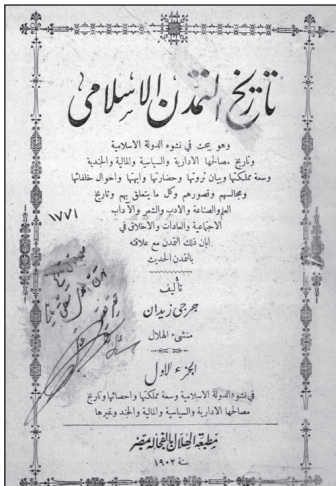 تاريخ التمدن الاسلامى
وهو يبحث في نشوء الدولة الاسلامية
وتاريخ مصالحها الادارية والسياسية والمالية والجندية
وسعة مملكتها وبيان ثروتها وحضارتها وابهتها واحوال خلفائها
ومجالسهم وقصورهم وكل ما يتعلق بهم وتاريخ
العلم والصناعة والادب والشعر والآداب
الاجتماعية والعادات والاخلاق في
ابان ذلك التمدن مع علاقته
بالتمدن الحديث
١٧٧١
تأليف
جرجي زيدان
منشئ الهلال
الجزء الاول
في نشوء الدولة الاسلامية وسعة مملكتها واحصائها وتاريخ
مصالحها الادارية والسياسية والمالية والجند وغيرها
مطبعة الهلال بالفجالة بمصر
سنة ١٩٠٢